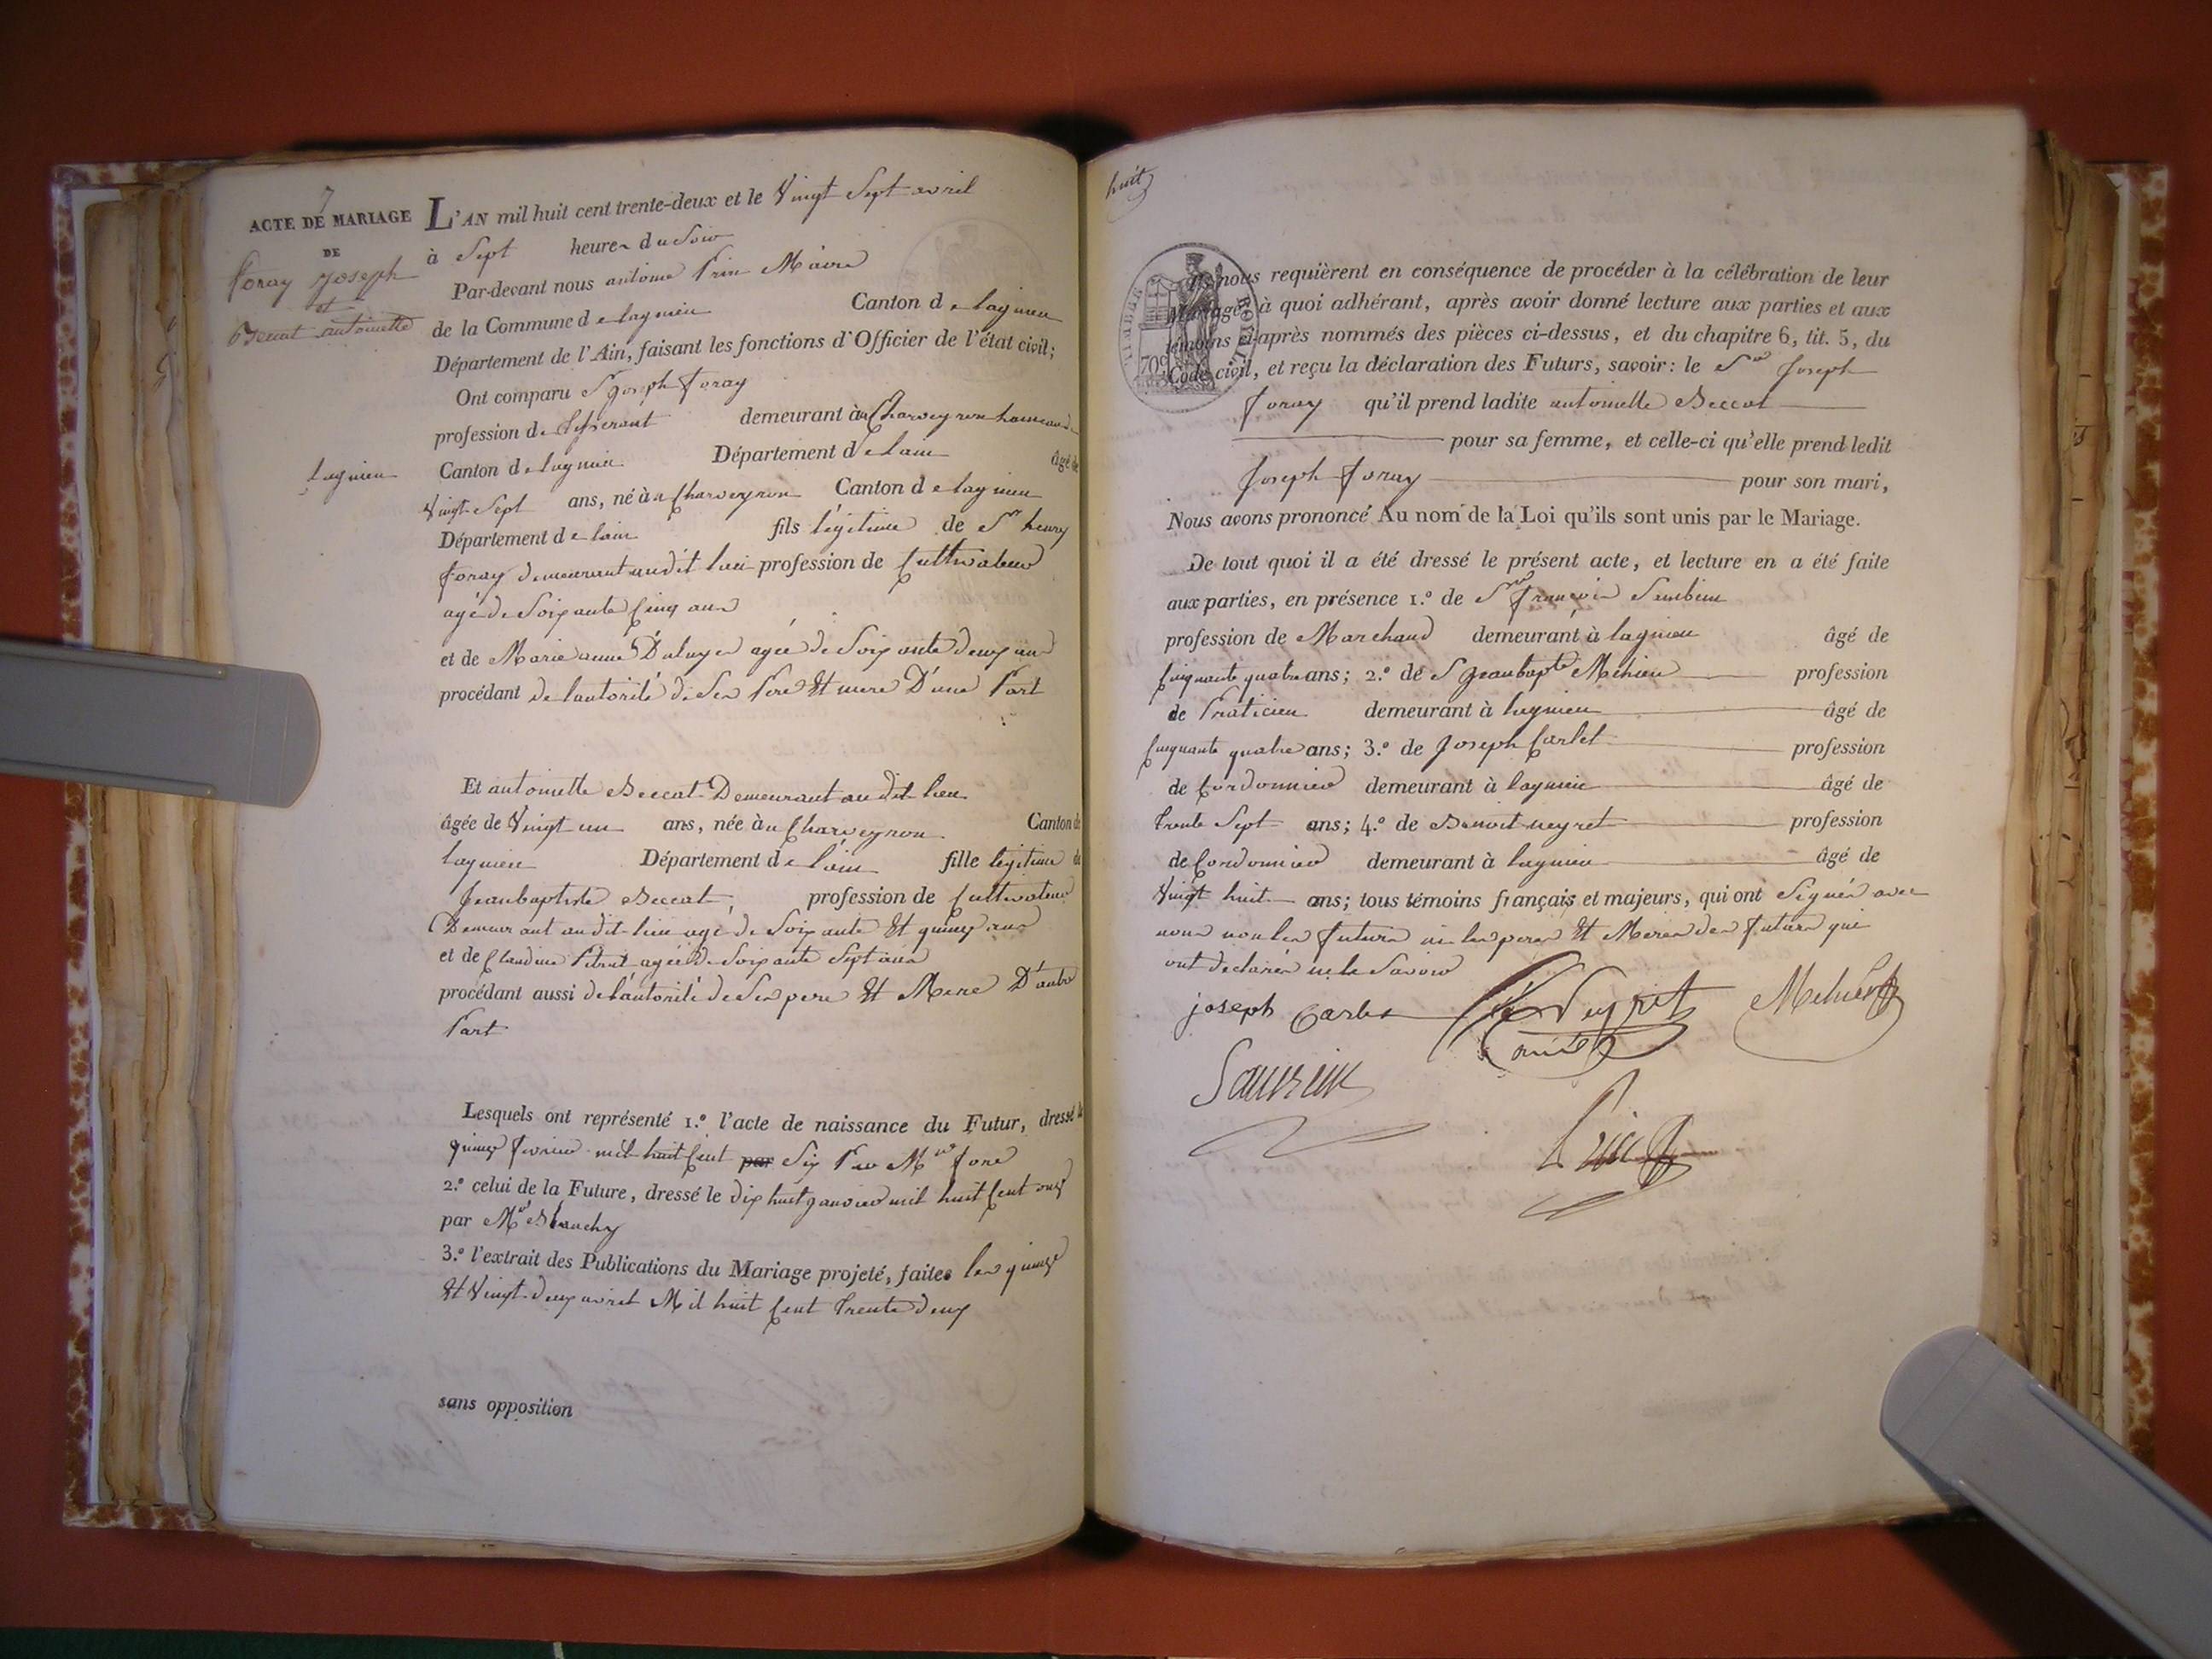 7
ACTE DE MARIAGE
DE
foray Joseph
et
Beccat antoinette
L'AN mil huit cent trente-deux et le Vingt Sept avril
à Sept heures du Soir
Par-devant nous antoine Prin Maire
de la Commune de lagnieu Canton de lagnieu
Département de l'Ain, faisant les fonctions d'Officier de l'état civil;
Ont comparu S Joseph foray
profession de demeurant au Charveyron hameau de
lagnieu
Canton de lagnieu Département de lain âgé de
Vingt Sept ans, né au Charveyron Canton de lagnieu
Département de lain fils légitime de Sr henry
foray demeurant audit lieu profession de Cultivateur
agé de Soixante Cinq ans
et de Marie anne agée de Soixante deux ans
procédant de lautorité de Ses Pere Et mere D'une Part
Et antoinette Beccat Demeurant au dit lieu
âgée de Vingt un ans, née au Charveyron Canton de
lagnieu Département de l'ain fille légitime de
Jeanbaptiste Beccat, profession de Cultivateur
Demeurant audit lieu agé de Soixante Et quinze ans
et de Claudine agée de Soixante Sept ans
procédant aussi de l'autorité de Ses pere Et Mere D'autre
Part
Lesquels ont représenté 1.º l'acte de naissance du Futur, dressé le
quinze fevrier mil huit Cent par Six Par Mr foré
2.º celui de la Future, dressé le dix huit janvier mil huit Cent onze
par Mr Blanchy
3.º l'extrait des Publications du Mariage projeté, faites les quinze
Et Vingt-deux avril Mil huit Cent trente deux
sans opposition
huit
TIMBRE ROYAL
70c
Ils nous requièrent en conséquence de procéder à la célébration de leur
Mariage, à quoi adhérant, après avoir donné lecture aux parties et aux
témoins ci-après nommés des pièces ci-dessus, et du chapitre 6, tit. 5, du
Code civil, et reçu la déclaration des Futurs, savoir: le Sr Joseph
foray qu'il prend ladite antoinette Beccat
pour sa femme, et celle-ci qu'elle prend ledit
Joseph foray pour son mari,
Nous avons prononcé Au nom de la Loi qu'ils sont unis par le Mariage.
De tout quoi il a été dressé le présent acte, et lecture en a été faite
aux parties, en présence 1.º de Sr françois
profession de Marchand demeurant à lagnieu âgé de
Cinquante quatre ans; 2.º de S Jeanbapte Mehier profession
de Praticien demeurant à lagnieu âgé de
Cinquante quatre ans; 3.º de Joseph Carlet profession
de Cordonnier demeurant à lagnieu âgé de
trente Sept ans; 4.º de Benoit neyret profession
de Cordonnier demeurant à lagnieu âgé de
Vingt huit ans; tous témoins français et majeurs, qui ont Signés avec
nous non les futurs ni les peres Et Meres des futurs qui
ont declarés ne le Savoir
joseph Carlet Neyret Mehier
Prin